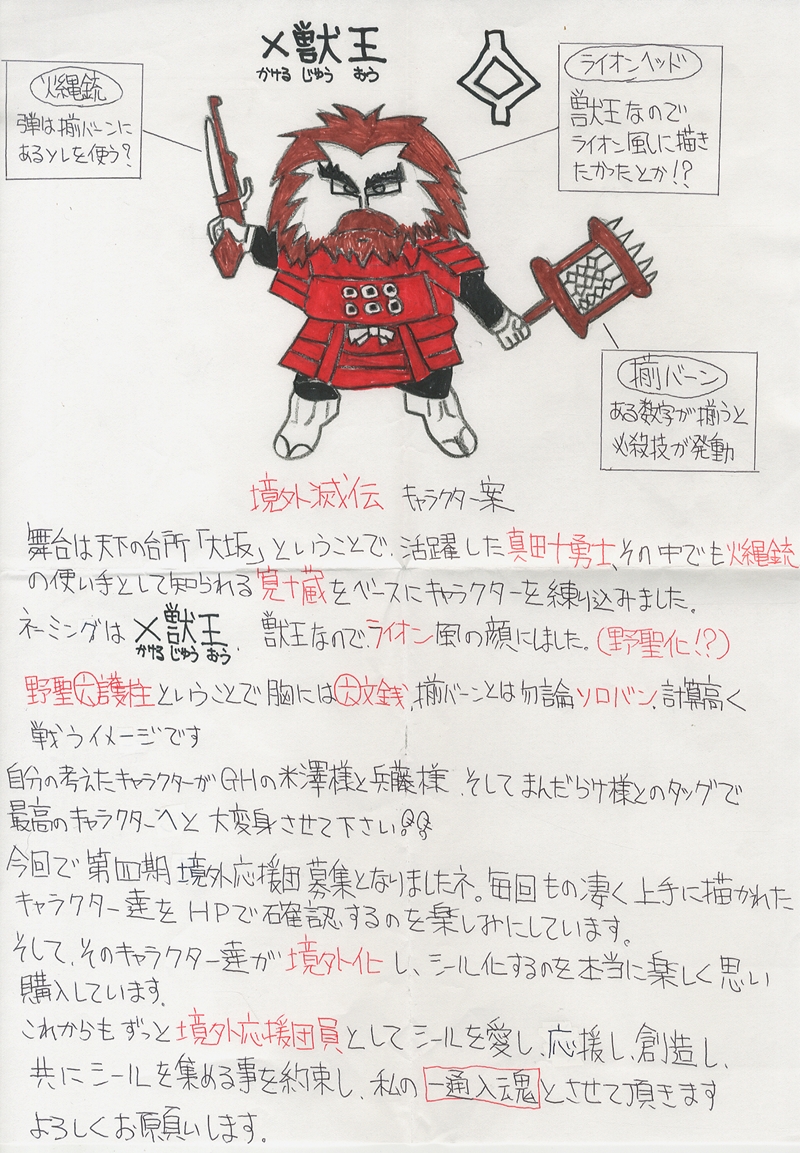 ×獣王
かける じゅう おう
火縄銃
弾は揃バーンに
あるヤしを使う?
ライオンヘッド
獣王なので
ライオン風に描き
たかったとか!?
揃バーン
ある数字が揃うと
必殺技が発動
境外滅伝 キャラクター案
舞台は天下の台所「大坂」ということで、活躍した真田十勇士、その中でも火縄銃
の使い手として知られる筧十蔵をベースにキャラクターを練り込みました。
ネーミングは ×獣王、獣王なので、ライオン風の顔にしました。(野聖化!?)
かける じゅう おう
野聖六護柱ということで胸には六文銭、揃バーンとは勿論ソロバン、計算高く
戦うイメージです
自分の考えたキャラクターがGHの米澤様と兵藤様、そしてまんだらけ様とのタッグで
最高のキャラクターへと大変身させて下さい!!
今回で第四期境外応援団募集となりましたネ。毎回もの凄く上手に描かれた
キャラクター達をHPで確認するのを楽しみにしています。
そして、そのキャラクター達が境外化し、シール化するのを本当に楽しく思い
購入しています。
これからもずっと境外応援団員としてシールを愛し、応援し、創造し、
共にシールを集める事を約束し、私の一通入魂とさせて頂きます
よろしくお願いします。